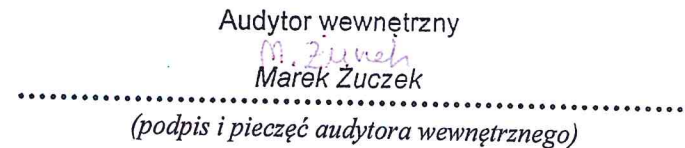 Audytor wewnętrzny
M. Żuczek
Marek Żuczek
(podpis i pieczęć audytora wewnętrznego)